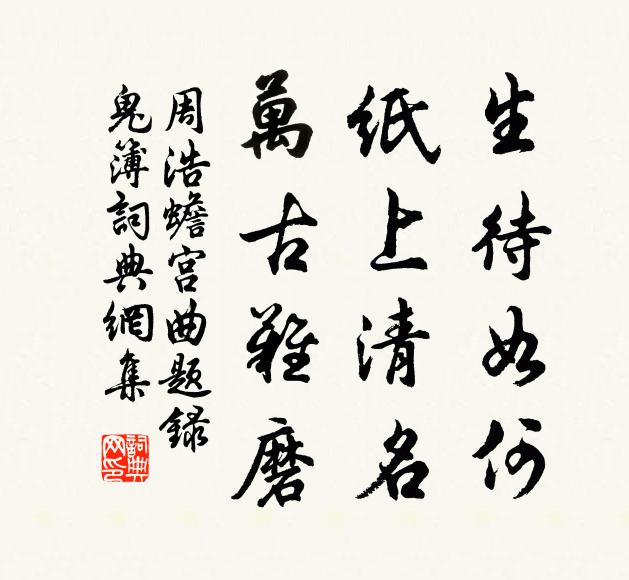 生待如何
紙上清名
萬古難磨
周浩蟾宮曲題録
鬼簿詞典網集
詞典網印